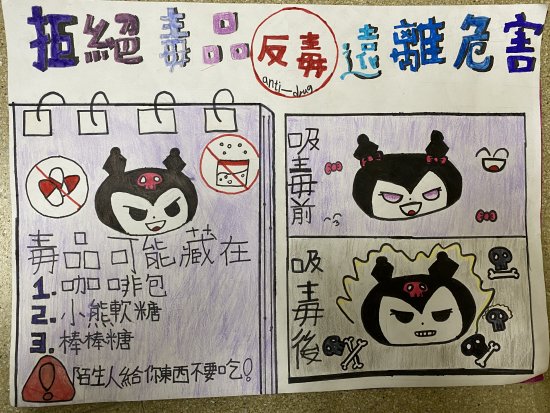 拒絕毒品 反毒 遠離危害
anti-drug
毒品可能藏在
1. 咖啡包
2. 小熊軟糖
3. 棒棒糖
陌生人給你東西不要吃!
吸毒前
吸毒後